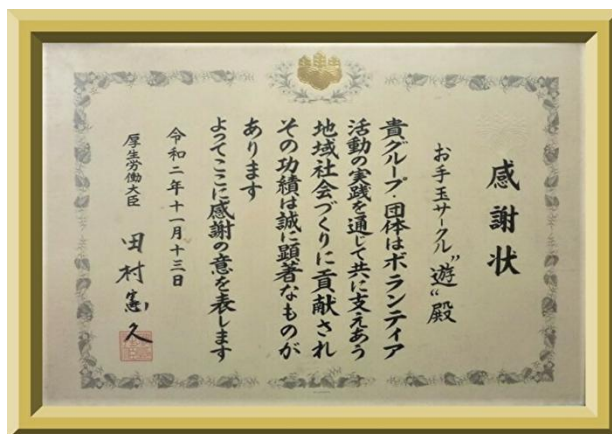 感謝状
お手玉サークル“遊“殿
貴グループ・団体はボランティア
活動の実践を通じて共に支えあう
地域社会づくりに貢献され
その功績は誠に顕著なものが
あります
よってここに感謝の意を表します
令和二年十一月十三日
厚生労働大臣 田村憲久